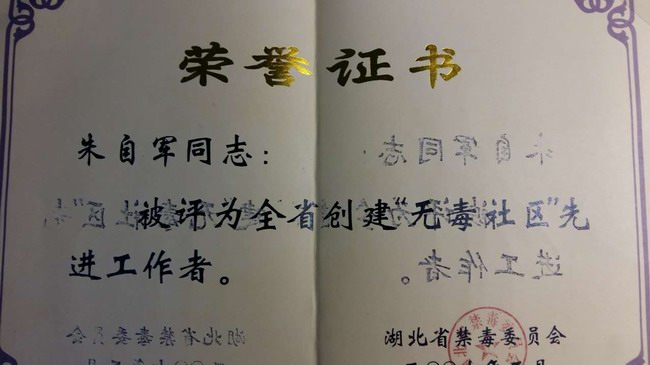 荣誉证书
朱自军同志：
被评为全省创建“无毒社区”先
进工作者。
湖北省禁毒委员会